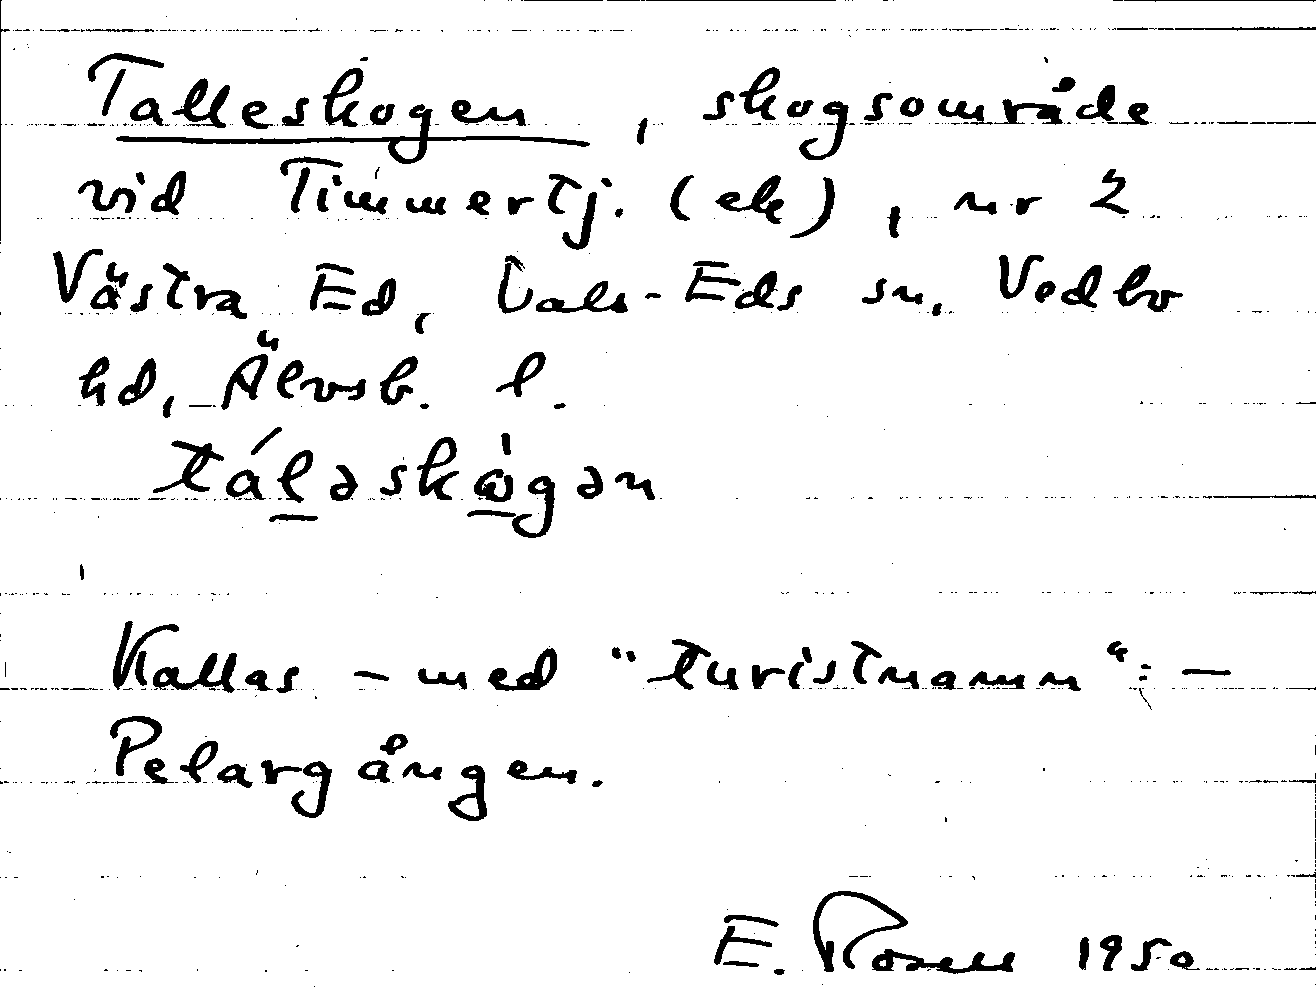 Talleskogen, skogsområde
vid Timmertj. (ek), nr 2
Västra Ed, Dals-Eds sn, Vedbo
hd, Älvsb. l.
tálǝskògǝn
Kallas – med "turistnamn": –
Pelargången.
E. Rosell 1950